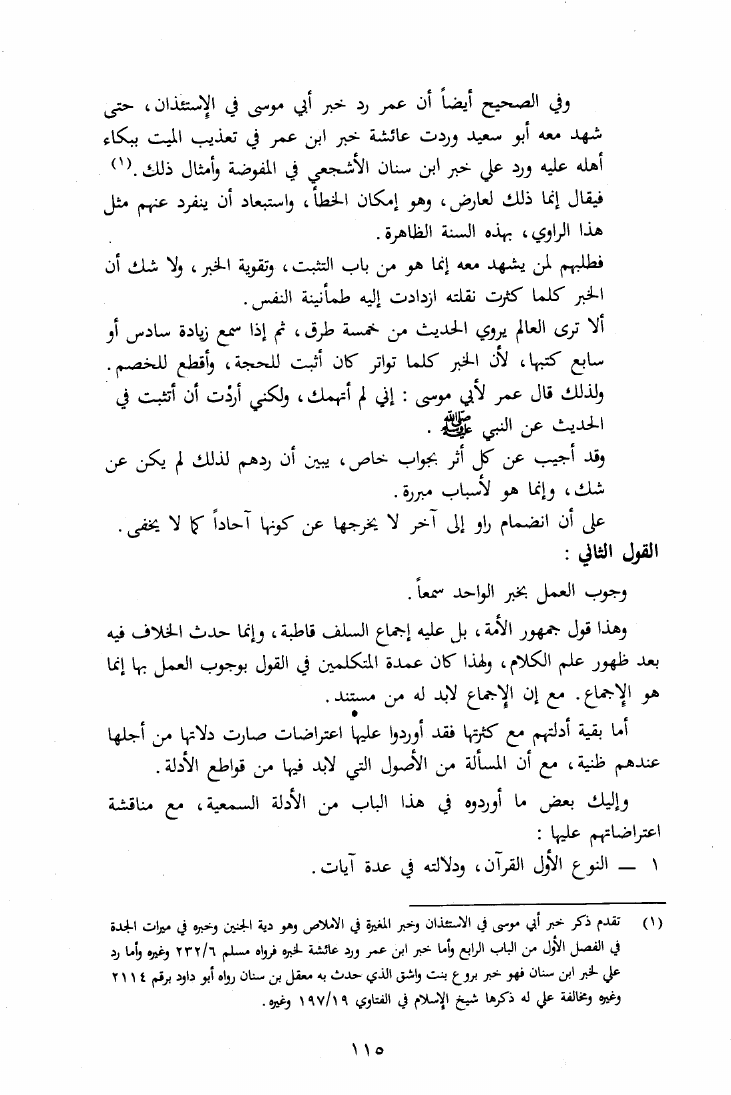 وفي الصحيح أيضاً أن عمر رد خبر أبي موسى في الإستئذان، حتى
شهد معه أبو سعيد وردت عائشة خبر ابن عمر في تعذيب الميت ببكاء
أهله عليه ورد علي خبر ابن سنان الأشجعي في المفوضة وأمثال ذلك. (١)
فيقال إنما ذلك لعارض، وهو إمكان الخطأ، واستبعاد أن ينفرد عنهم مثل
هذا الراوي، بهذه السنة الظاهرة.
فطلبهم لمن يشهد معه إنما هو من باب التثبت، وتقوية الخبر، ولا شك أن
الخبر كلما كثرت نقلته ازدادت إليه طمأنينة النفس.
ألا ترى العالم يروي الحديث من خمسة طرق، ثم إذا سمع زيادة سادس أو
سابع كتبها، لأن الخبر كلما تواتر كان أثبت للحجة، وأقطع للخصم.
ولذلك قال عمر لأبي موسى : إني لم أتهمك، ولكني أردْت أن أتثبت في
الحديث عن النبي ﷺ .
وقد أجيب عن كل أثر بجواب خاص، يبين أن ردهم لذلك لم يكن عن
شك، وإنما هو لأسباب مبررة.
على أن انضمام راو إلى آخر لا يخرجها عن كونها آحاداً كما لا يخفى.
القول الثاني :
وجوب العمل بخبر الواحد سمعاً.
وهذا قول جمهور الأمة، بل عليه إجماع السلف قاطبة، وإنما حدث الخلاف فيه
بعد ظهور علم الكلام، ولهذا كان عمدة المتكلمين في القول بوجوب العمل بها إنما
هو الإجماع. مع إن الإجماع لابد له من مستند.
أما بقية أدلتهم مع كثرتها فقد أوردوا عليها اعتراضات صارت دلاتها من أجلها
عندهم ظنية، مع أن المسألة من الأصول التي لابد فيها من قواطع الأدلة.
وإليك بعض ما أوردوه في هذا الباب من الأدلة السمعية، مع مناقشة
اعتراضاتهم عليها :
١ ــ النوع الأول القرآن، ودلالته في عدة آيات.
(١) تقدم ذكر خبر أبي موسى في الاستئذان وخبر المغيرة في الاملاص وهو دية الجنين وخبره في ميراث الجدة
في الفصل الأول من الباب الرابع وأما خبر ابن عمر ورد عائشة لخبره فرواه مسلم ٢٣٢/٦ وغيره وأما رد
علي لخبر ابن سنان فهو خبر بروع بنت واشق الذي حدث به معقل بن سنان رواه أبو داود برقم ٢١١٤
وغيره ومخالفة علي له ذكرها شيخ الإسلام في الفتاوي ١٩٧/١٩ وغيره.
١١٥